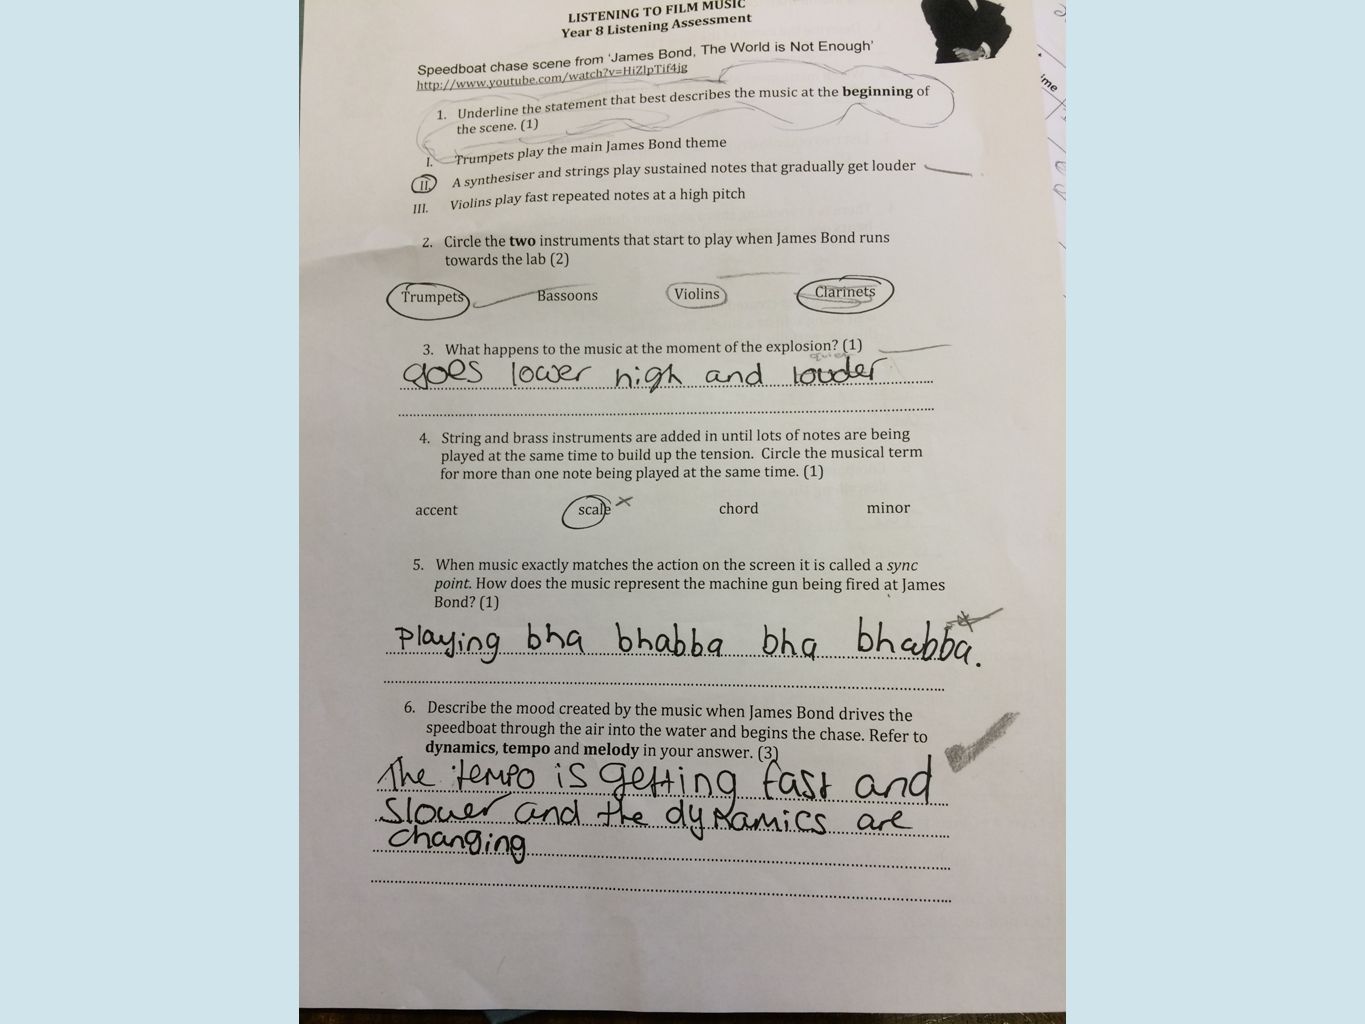 LISTENING TO FILM MUSIC
Year 8 Listening Assessment
Speedboat chase scene from ‘James Bond, The World is Not Enough’
http://www.youtube.com/watch?v=HiZlpTif4jg
1. Underline the statement that best describes the music at the beginning of
the scene. (1)
I. Trumpets play the main James Bond theme
II. A synthesiser and strings play sustained notes that gradually get louder
III. Violins play fast repeated notes at a high pitch
2. Circle the two instruments that start to play when James Bond runs
towards the lab (2)
Trumpets Bassoons Violins Clarinets
3. What happens to the music at the moment of the explosion? (1)
goes lower high and louder
4. String and brass instruments are added in until lots of notes are being
played at the same time to build up the tension. Circle the musical term
for more than one note being played at the same time. (1)
accent scale chord minor
5. When music exactly matches the action on the screen it is called a sync
point. How does the music represent the machine gun being fired at James
Bond? (1)
Playing bha bhabba bha bhabba.
6. Describe the mood created by the music when James Bond drives the
speedboat through the air into the water and begins the chase. Refer to
dynamics, tempo and melody in your answer. (3)
The tempo is getting fast and
slower and the dynamics are
changing